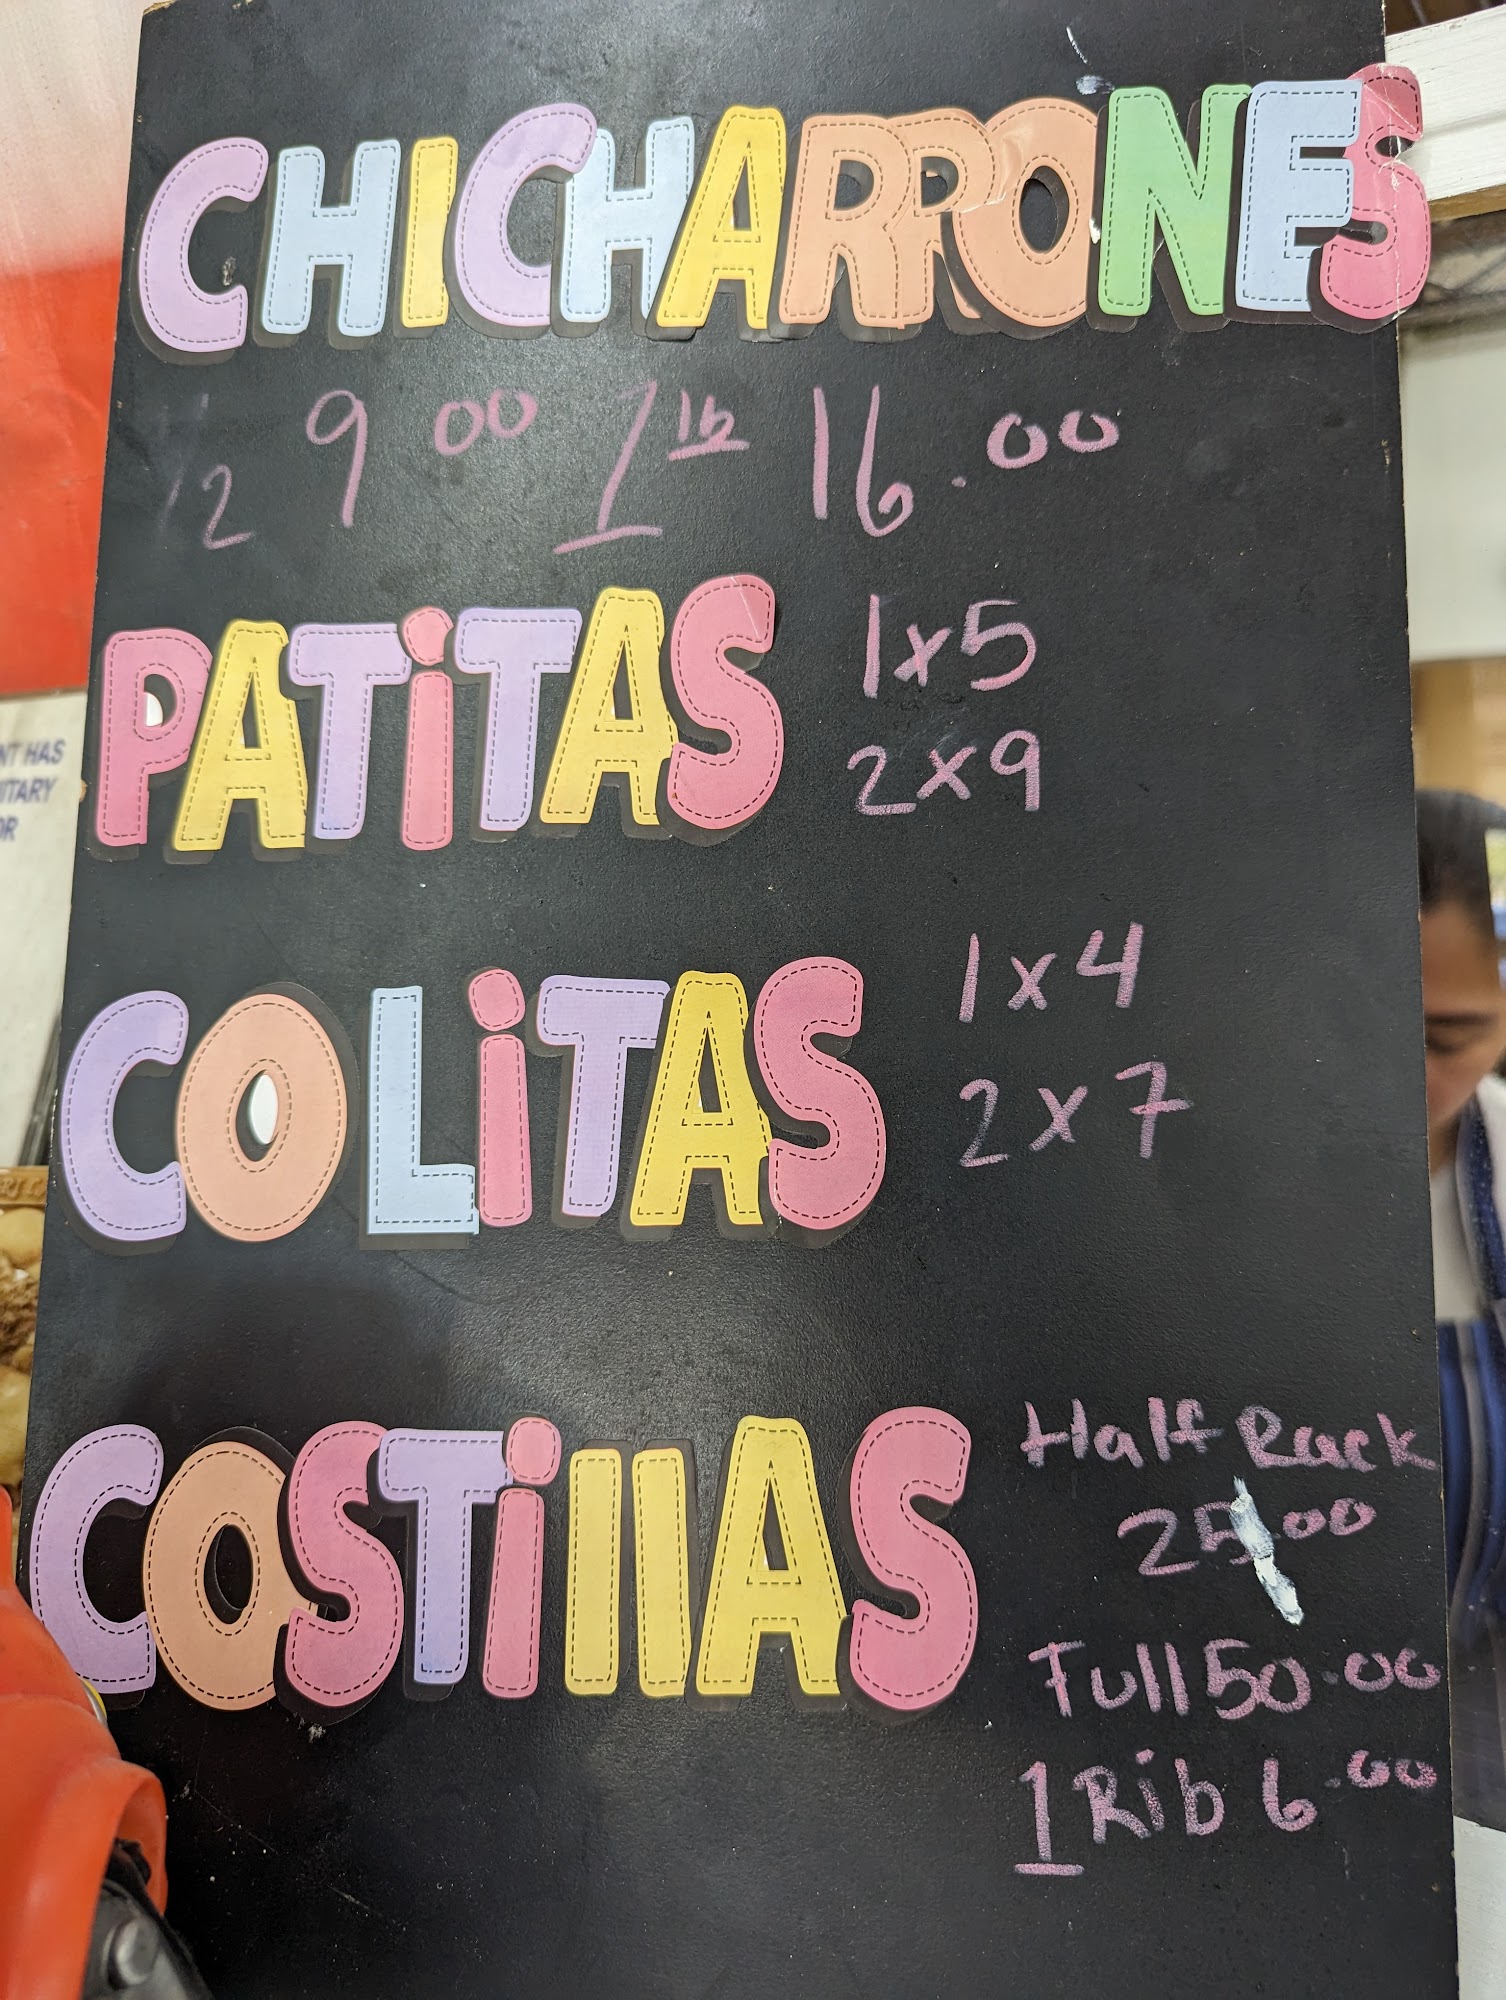 CHICHARRONES
1/2 9 00 1 lb 16.00
PATITAS
1x5
2x9
COLITAS
1x4
2x7
COSTillAS
Half Rack
25.00
Full 50.00
1 Rib 6.00
NT HAS
ITARY
OR